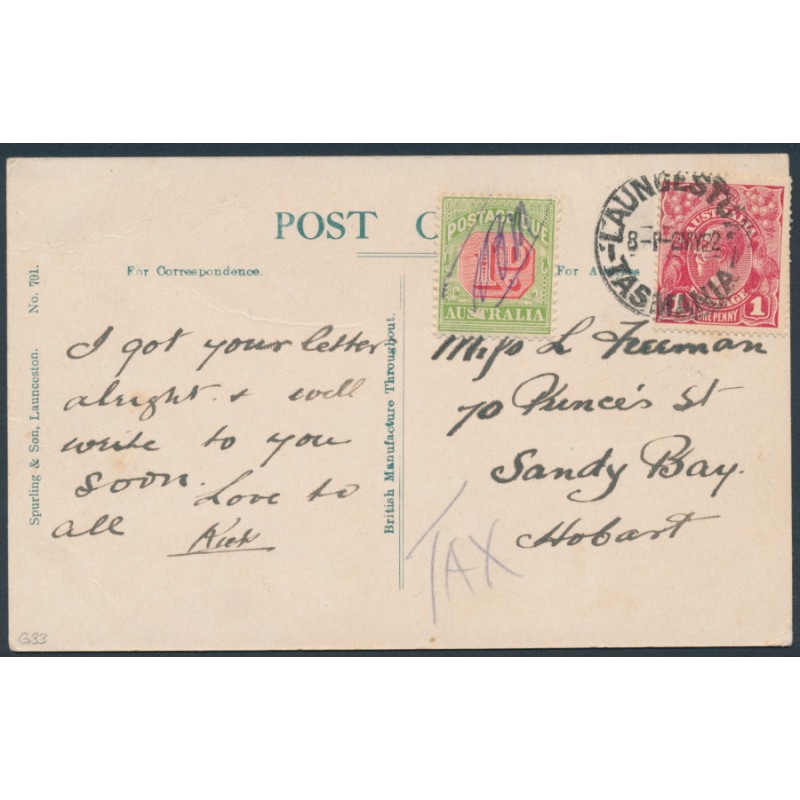 POST C
For Correspondence.
For A
POSTAGE DUE
1D
AUSTRALIA
LAUNCESTO
TASMANIA
AUSTRALIA
1 1
ONE PENNY
No. 791.
Spurling & Son, Launceston.
British Manufacture Throughout.
I got your letter
alright & will
write to you
soon. Love to
all
Miss L Freeman
70 Prince's St
Sandy Bay.
Hobart
TAX
G33